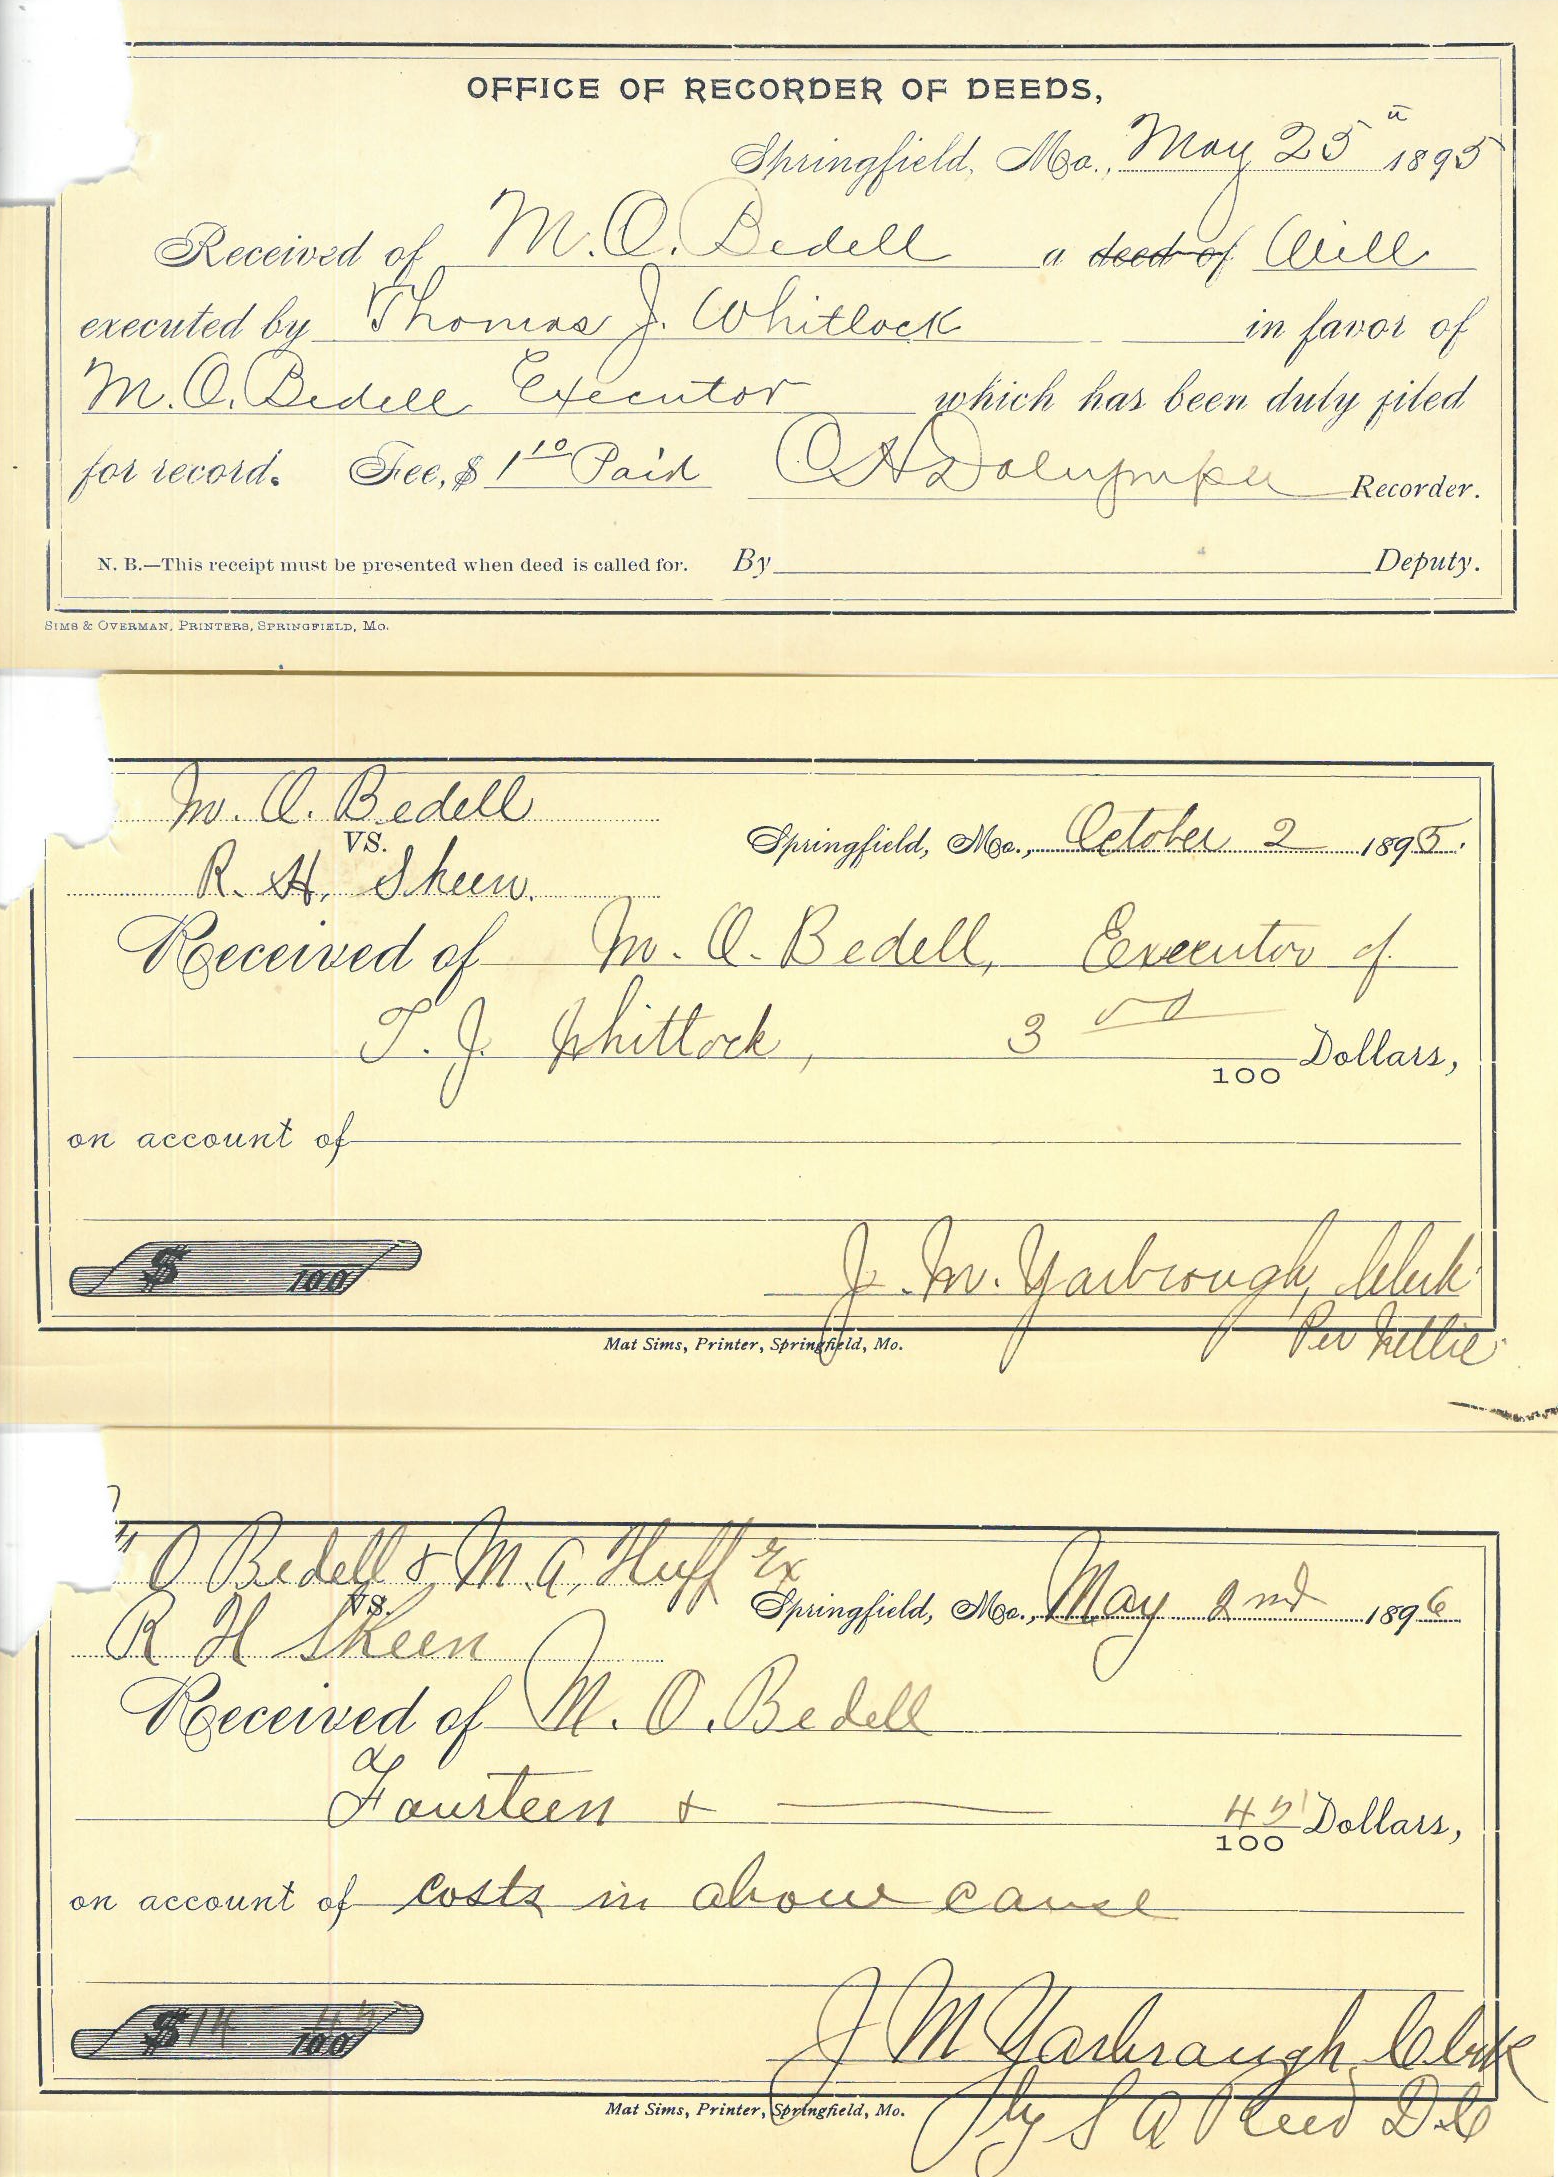 OFFICE OF RECORDER OF DEEDS,
Springfield, Mo., May 25" 1895
Received of M. O. Bedell a deed of Will
executed by Thomas J. Whitlock in favor of
M. O. Bedell Executor which has been duly filed
for record. Fee, $ 1 10 Paid Recorder.
N. B.—This receipt must be presented when deed is called for. By Deputy.
SIMS & OVERMAN, PRINTERS, SPRINGFIELD, MO.
M. O. Bedell
VS.
Springfield, Mo., October 2 1895.
R. H. Skeen.
Received of M. O. Bedell, Executor of
T. J. Whitlock, 3 00/100 Dollars,
on account of
$ 100
J. M. Yarbrough, Clerk
Per Nellie
Mat Sims, Printer, Springfield, Mo.
O Bedell & M. A. Huff Ex
VS.
Springfield, Mo., May 2nd 1896
R H Skeen
Received of M. O. Bedell
Fourteen & 45/100 Dollars,
on account of costs in above cause
$ 14 45/100
J M Yarbrough Clerk
By S A Reed D.C
Mat Sims, Printer, Springfield, Mo.